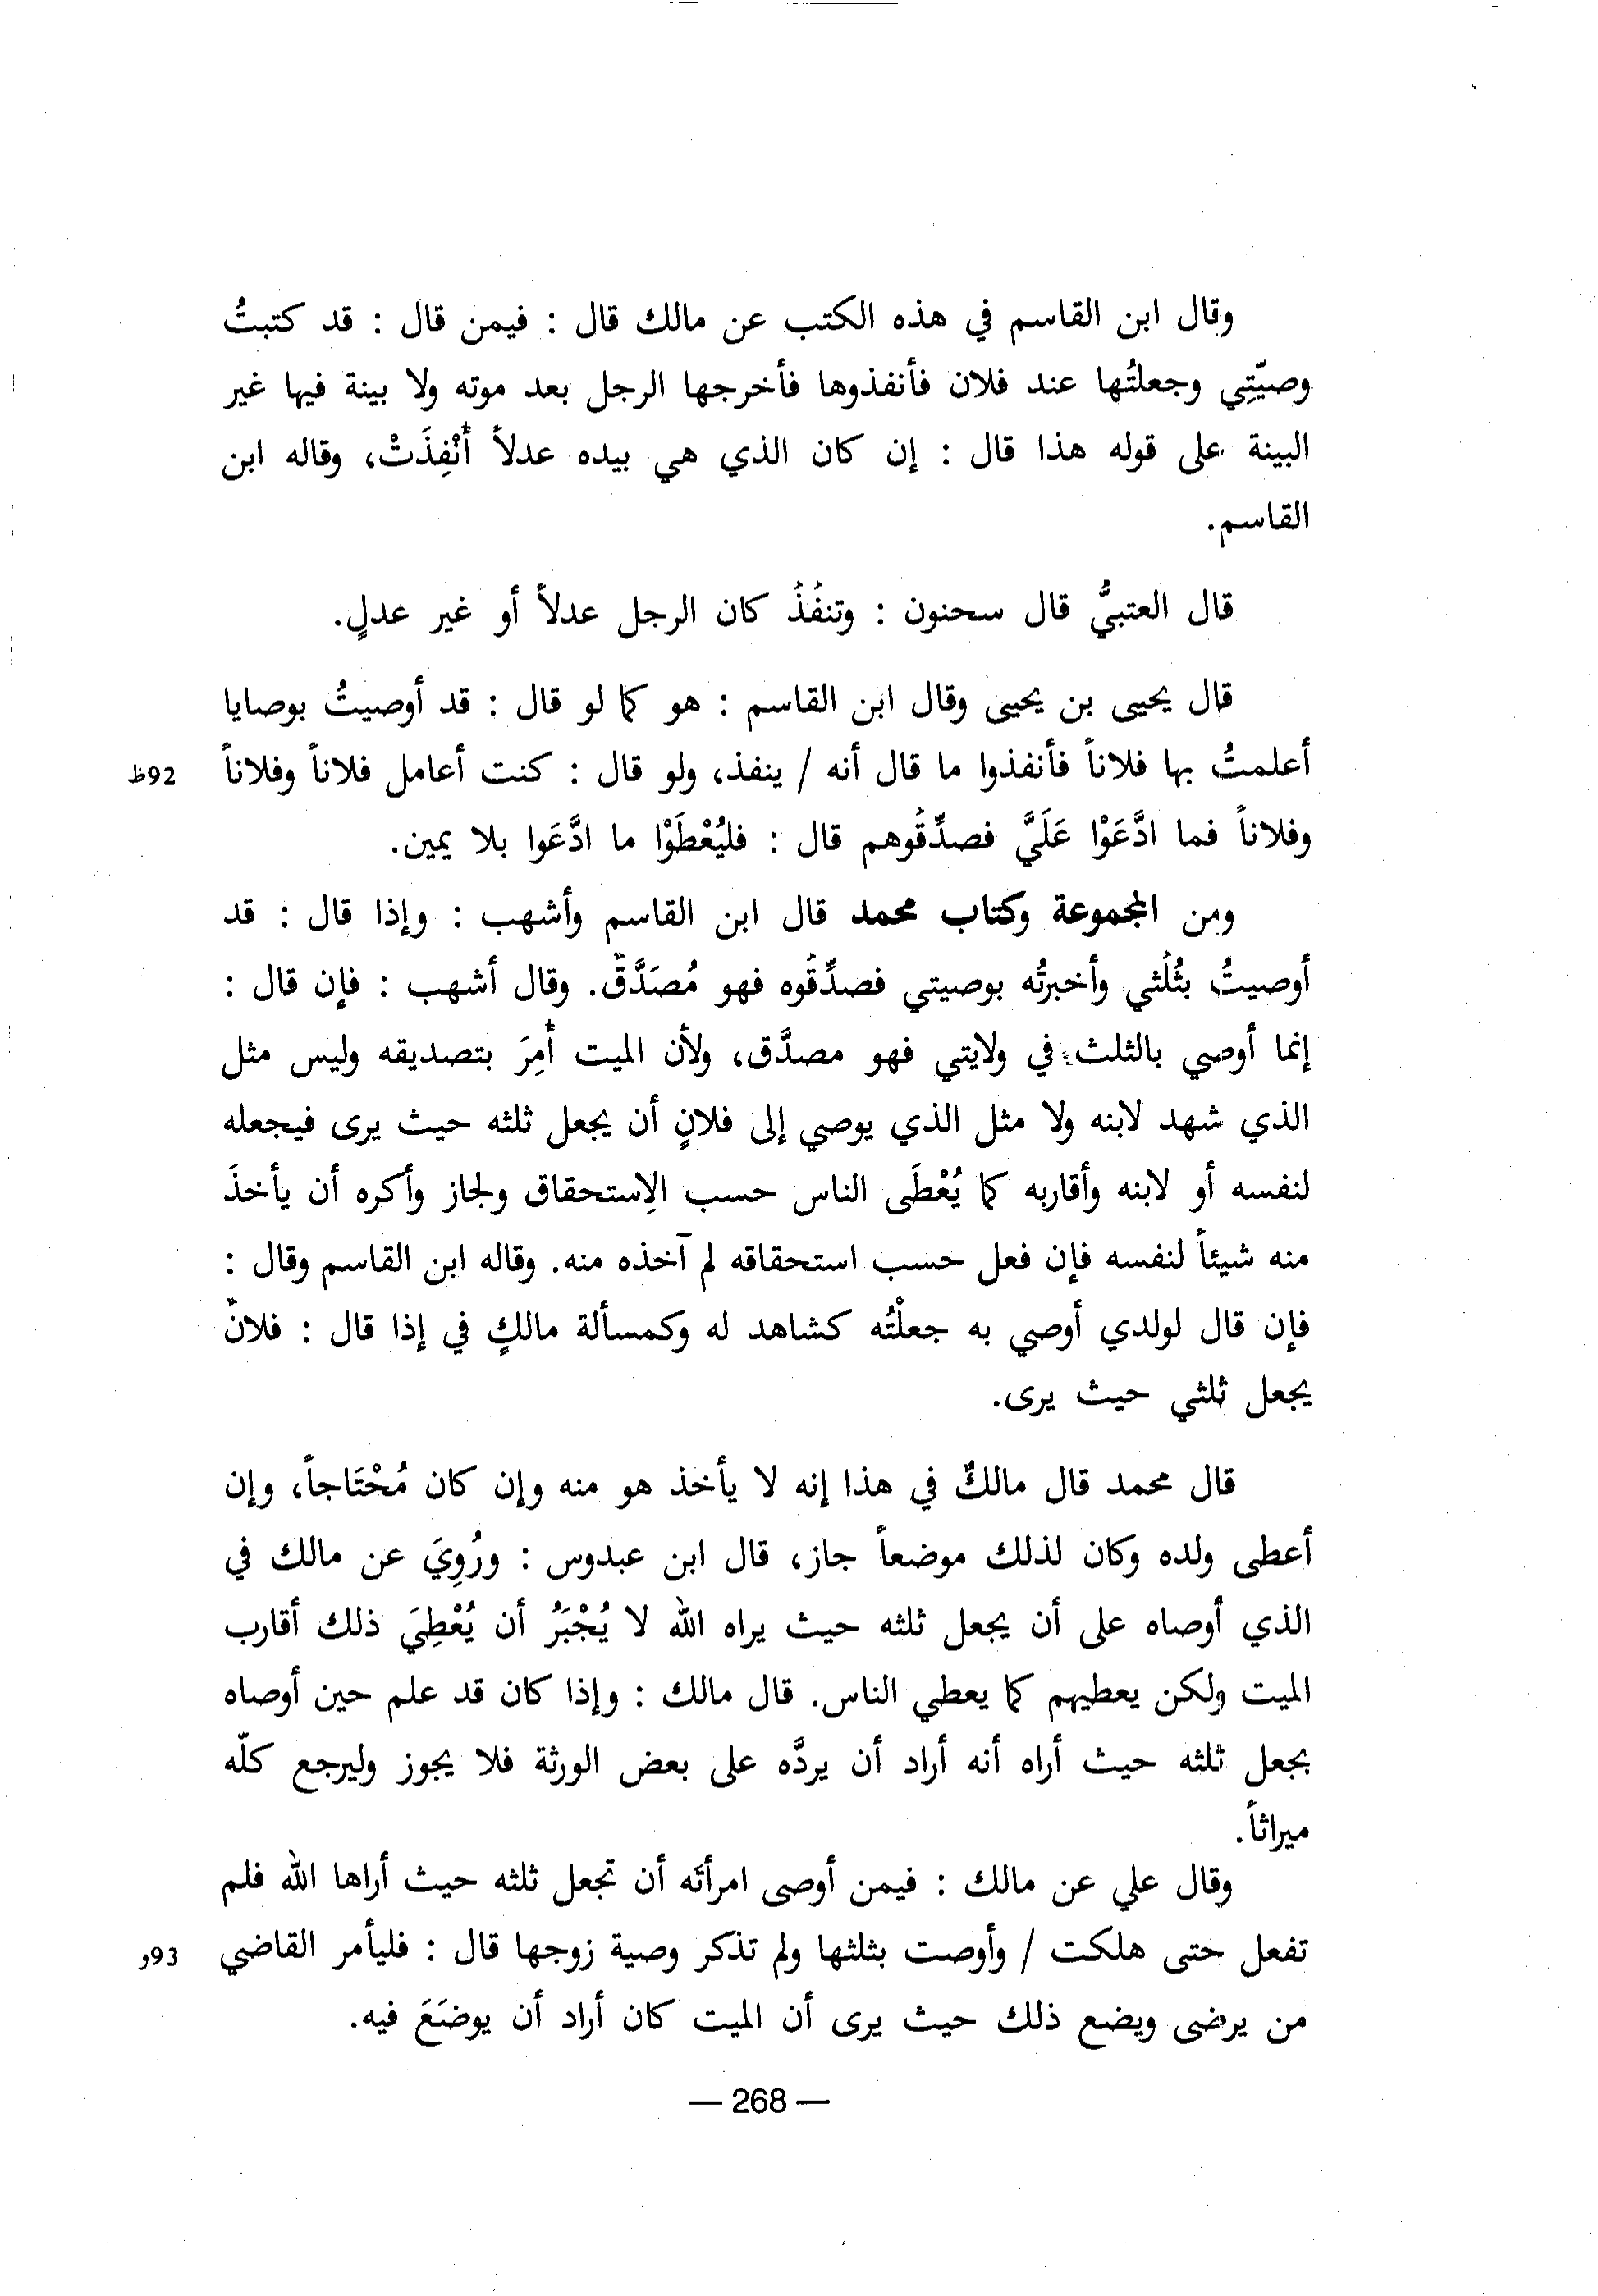 وقال ابن القاسم في هذه الكتب عن مالك قال : فيمن قال : قد كتبتُ
وصيّتِي وجعلتُها عند فلان فأنفذوها فأخرجها الرجل بعد موته ولا بينة فيها غير
البينة على قوله هذا قال : إن كان الذي هي بيده عدلاً أُنْفِذَتْ، وقاله ابن
القاسم.
قال العتبيُّ قال سحنون : وتنفُذُ كان الرجل عدلاً أو غير عدلٍ.
قال يحيى بن يحيى وقال ابن القاسم : هو كما لو قال : قد أوصيتُ بوصايا
أعلمتُ بها فلاناً فأنفذوا ما قال أنه / ينفذ، ولو قال : كنت أعامل فلاناً وفلاناً 92ظ
وفلاناً فما ادَّعَوْا عَلَيَّ فصدِّقُوهم قال : فليُعْطَوْا ما ادَّعَوا بلا يمين.
ومن المجموعة وكتاب محمد قال ابن القاسم وأشهب : وإذا قال : قد
أوصيتُ بثُلُثي وأخبرتُه بوصيتي فصدِّقُوه فهو مُصَدَّقٌ. وقال أشهب : فإن قال :
إنما أوصي بالثلث في ولايتي فهو مصدَّق، ولأن الميت أُمِرَ بتصديقه وليس مثل
الذي شهد لابنه ولا مثل الذي يوصي إلى فلانٍ أن يجعل ثلثه حيث يرى فيجعله
لنفسه أو لابنه وأقاربه كما يُعْطَى الناس حسب الإستحقاق ولجاز وأكره أن يأخذَ
منه شيئاً لنفسه فإن فعل حسب استحقاقه لم آخذه منه. وقاله ابن القاسم وقال :
فإن قال لولدي أوصي به جعلْتُه كشاهد له وكمسألة مالكٍ في إذا قال : فلانٌ
يجعل ثلثي حيث يرى.
قال محمد قال مالكٌ في هذا إنه لا يأخذ هو منه وإن كان مُحْتَاجاً، وإن
أعطى ولده وكان لذلك موضعاً جاز، قال ابن عبدوس : ورُوِيَ عن مالك في
الذي أوصاه على أن يجعل ثلثه حيث يراه الله لا يُجْبَرُ أن يُعْطِيَ ذلك أقارب
الميت ولكن يعطيهم كما يعطي الناس. قال مالك : وإذا كان قد علم حين أوصاه
بجعل ثلثه حيث أراه أنه أراد أن يردَّه على بعض الورثة فلا يجوز وليرجع كلّه
ميراثاً.
وقال علي عن مالك : فيمن أوصى امرأتَه أن تجعل ثلثه حيث أراها الله فلم
تفعل حتى هلكت / وأوصت بثلثها ولم تذكر وصية زوجها قال : فليأمر القاضي 93و
من يرضى ويضع ذلك حيث يرى أن الميت كان أراد أن يوضَعَ فيه.
— 268 —